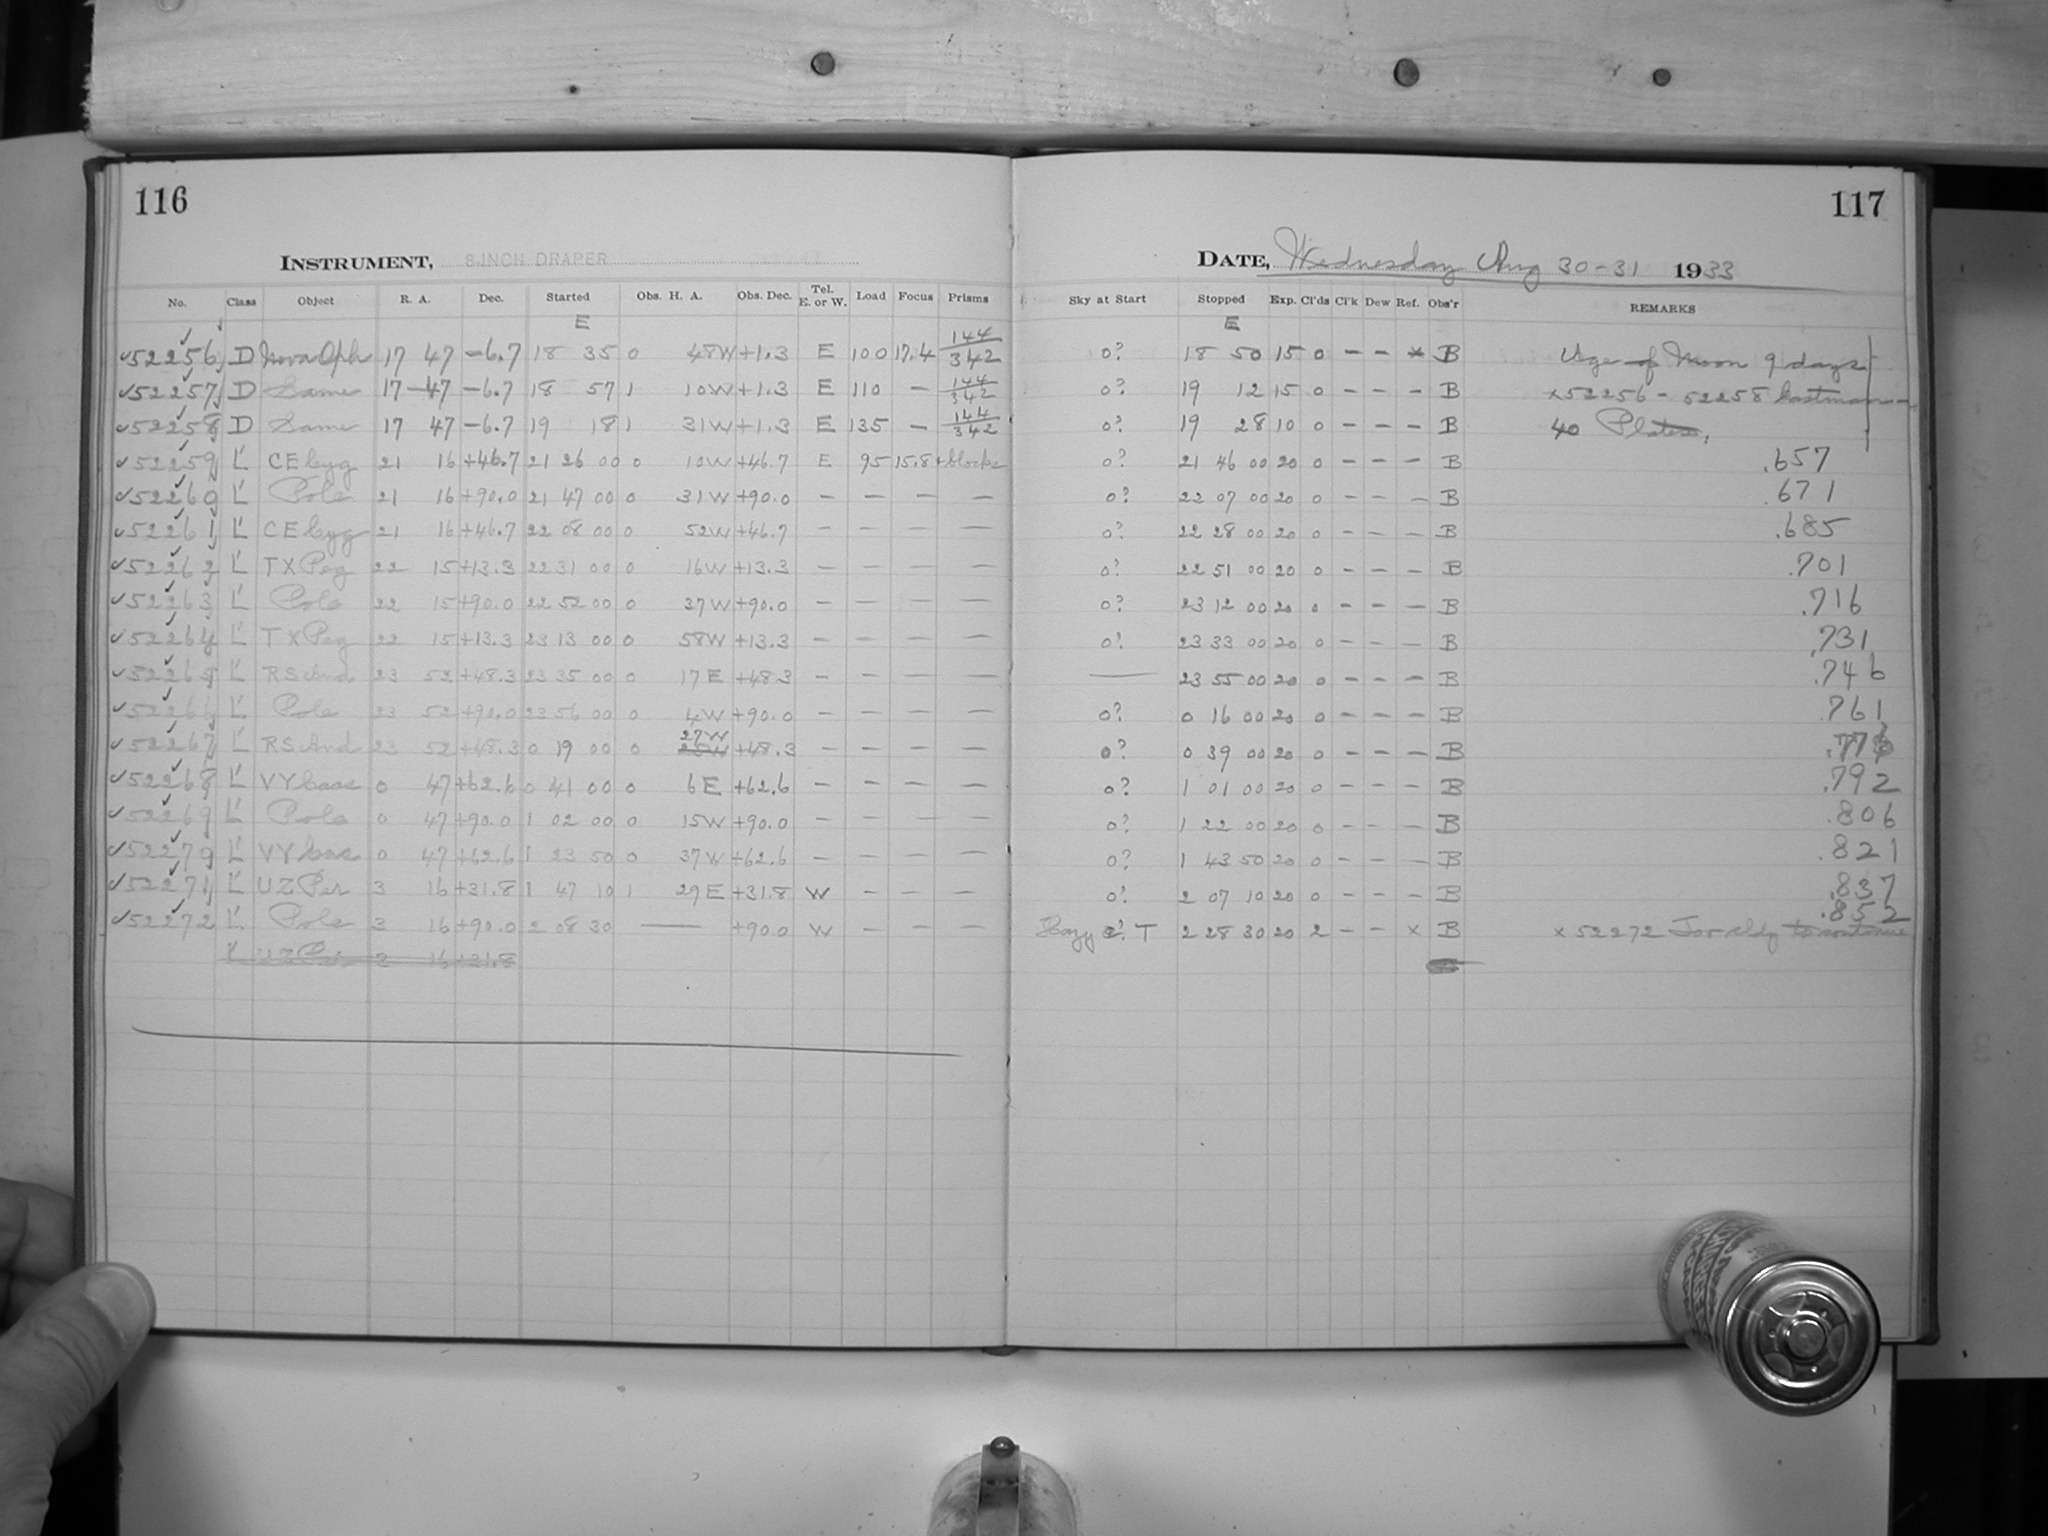 116
INSTRUMENT, 8 INCH DRAPER
No. Class Object R. A. Dec. Started Obs. H. A. Obs. Dec. Tel. E. or W. Load Focus Prisms
E
✓52256 D Nova Oph 17 47 -6.7 18 35 0 48W +1.3 E 100 17.4 144/342
✓52257 D Same 17 47 -6.7 18 57 1 10W +1.3 E 110 – 144/342
✓52258 D Same 17 47 -6.7 19 18 1 31W +1.3 E 135 – 144/342
✓52259 L' CE Cyg 21 16 +46.7 21 26 00 0 10W +46.7 E 95 15.8 + blocks
✓52260 L' Pole 21 16 +90.0 21 47 00 0 31W +90.0 – – – –
✓52261 L' CE Cyg 21 16 +46.7 22 08 00 0 52W +46.7 – – – –
✓52262 L' TX Peg 22 15 +13.3 22 31 00 0 16W +13.3 – – – –
✓52263 L' Pole 22 15 +90.0 22 52 00 0 37W +90.0 – – – –
✓52264 L' TX Peg 22 15 +13.3 23 13 00 0 58W +13.3 – – – –
✓52265 L' RS And 23 52 +48.3 23 35 00 0 17E +48.3 – – – –
✓52266 L' Pole 23 52 +90.0 23 56 00 0 4W +90.0 – – – –
27W
✓52267 L' RS And 23 52 +48.3 0 19 00 0 25W +48.3 – – – –
✓52268 L' VY Cass 0 47 +62.6 0 41 00 0 6E +62.6 – – – –
✓52269 L' Pole 0 47 +90.0 1 02 00 0 15W +90.0 – – – –
✓52270 L' VY Cas 0 47 +62.6 1 23 50 0 37W +62.6 – – – –
✓52271 L' UZ Per 3 16 +31.8 1 47 10 1 29E +31.8 W – – –
✓52272 L' Pole 3 16 +90.0 2 08 30 — +90.0 W – – –
L' UZ Per 3 16 +31.8
117
DATE, Wednesday Aug 30-31 1933
Sky at Start Stopped Exp. Cl'ds Cl'k Dew Ref. Obs'r REMARKS
E
0? 18 50 15 0 – – x B Age of Moon 9 days
0? 19 12 15 0 – – – B x52256 - 52258 Eastman
0? 19 28 10 0 – – – B 40 Plates.
0? 21 46 00 20 0 – – – B .657
0? 22 07 00 20 0 – – – B .671
0? 22 28 00 20 0 – – – B .685
0? 22 51 00 20 0 – – – B .701
0? 23 12 00 20 0 – – – B .716
0? 23 33 00 20 0 – – – B .731
— 23 55 00 20 0 – – – B .746
0? 0 16 00 20 0 – – – B .761
0? 0 39 00 20 0 – – – B
0? 1 01 00 20 0 – – – B .792
0? 1 22 00 20 0 – – – B .806
0? 1 43 50 20 0 – – – B .821
0? 2 07 10 20 0 – – – B .837
.852
Hazy T 2 28 30 20 2 – – x B x 52272 Too cldy to continue